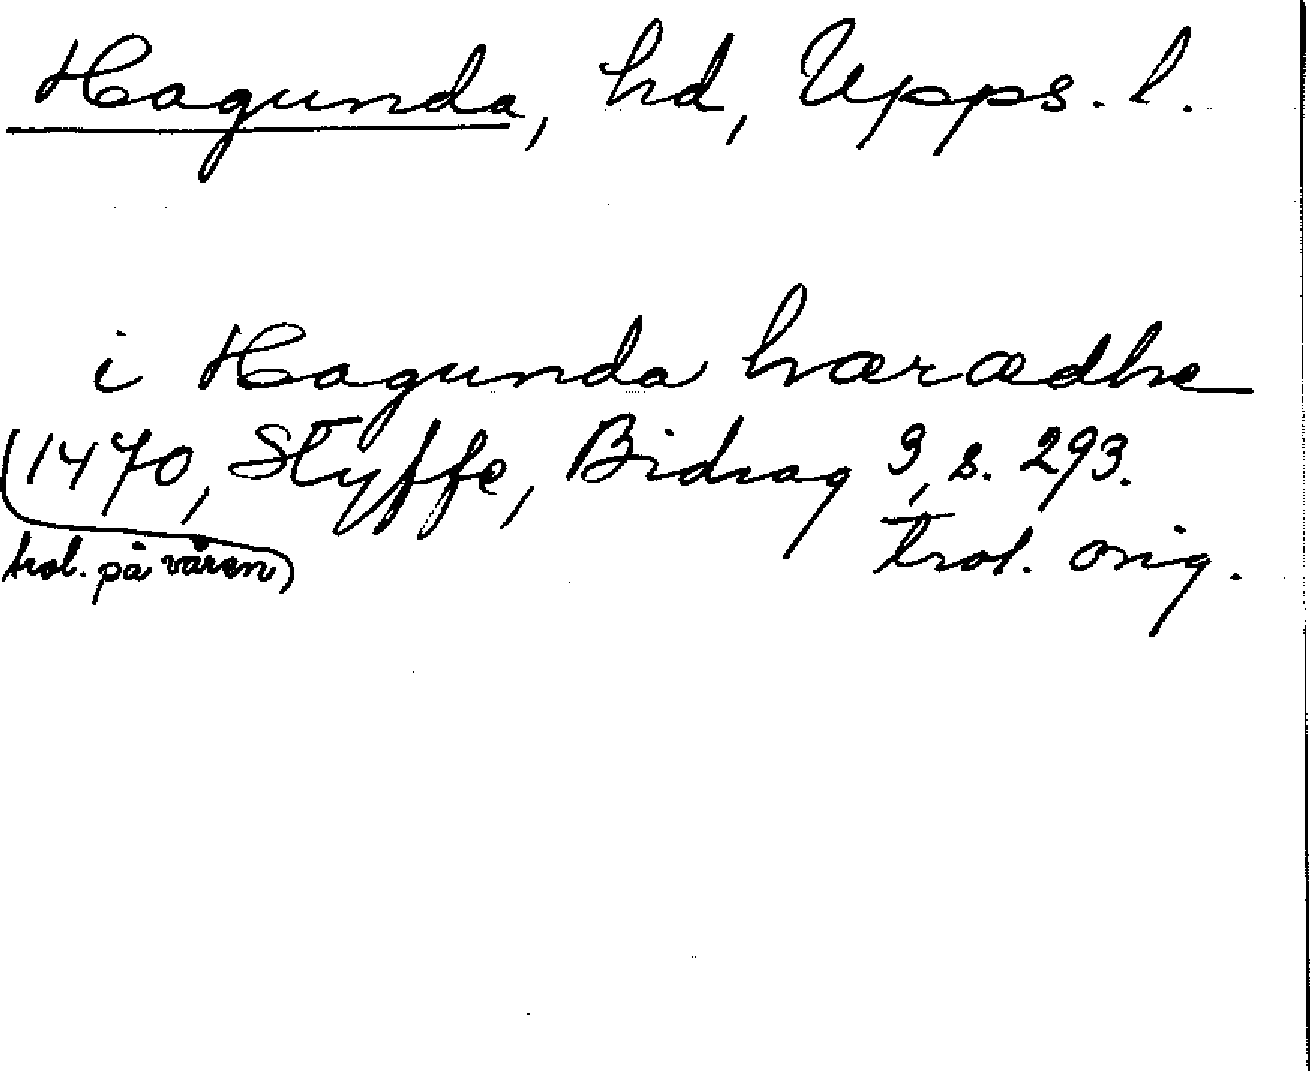 Hagunda, hd, Upps. l.
i Hagunda hærædhe
(1470, Styffe, Bidrag 3, s. 293.
trol. på våren)
trol. orig.